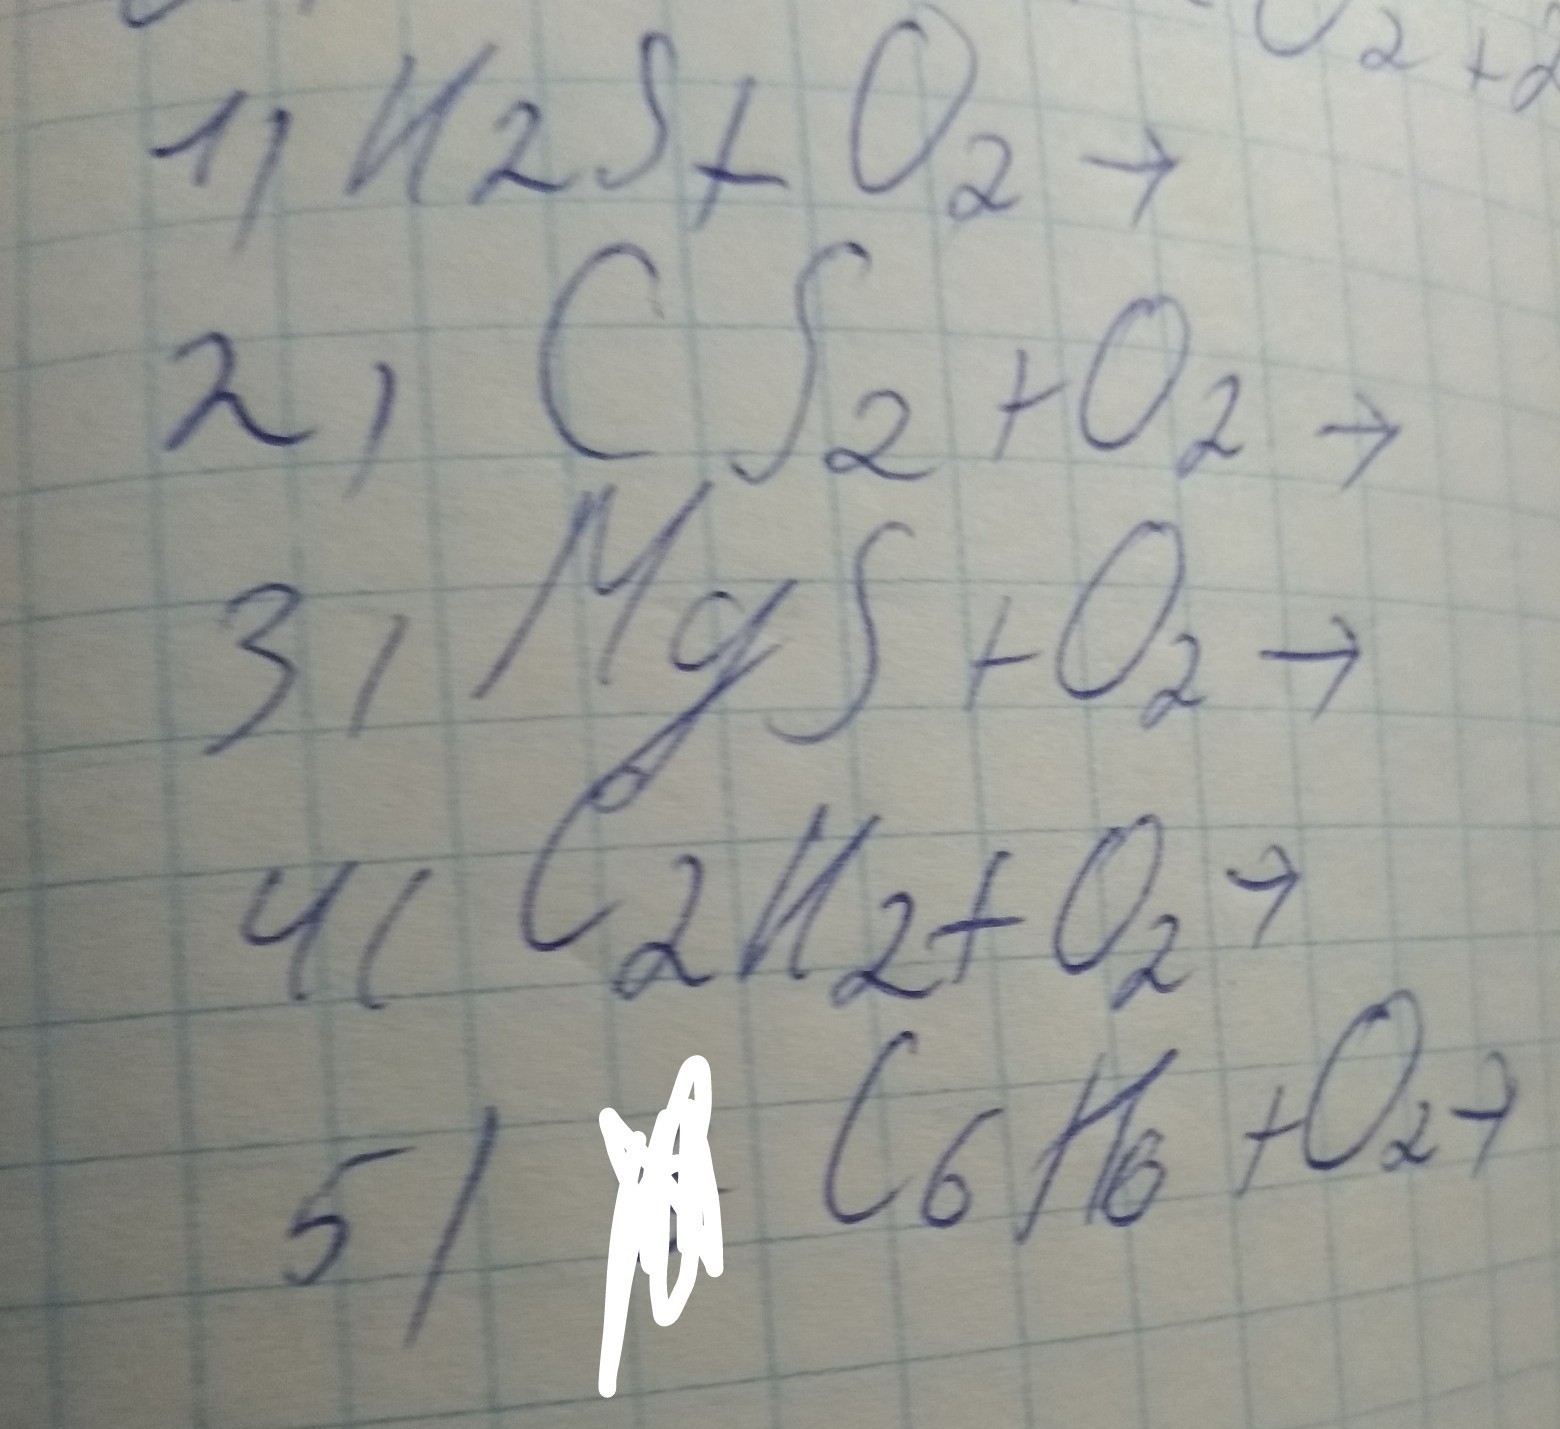 O2 + 2
1) H2S + O2 →
2) CS2 + O2 →
3) MgS + O2 →
4) C2H2 + O2 →
5) C6H6 + O2 →